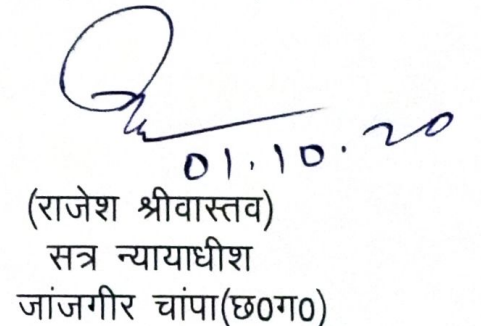 01.10.20
(राजेश श्रीवास्तव)
सत्र न्यायाधीश
जांजगीर चांपा(छ0ग0)